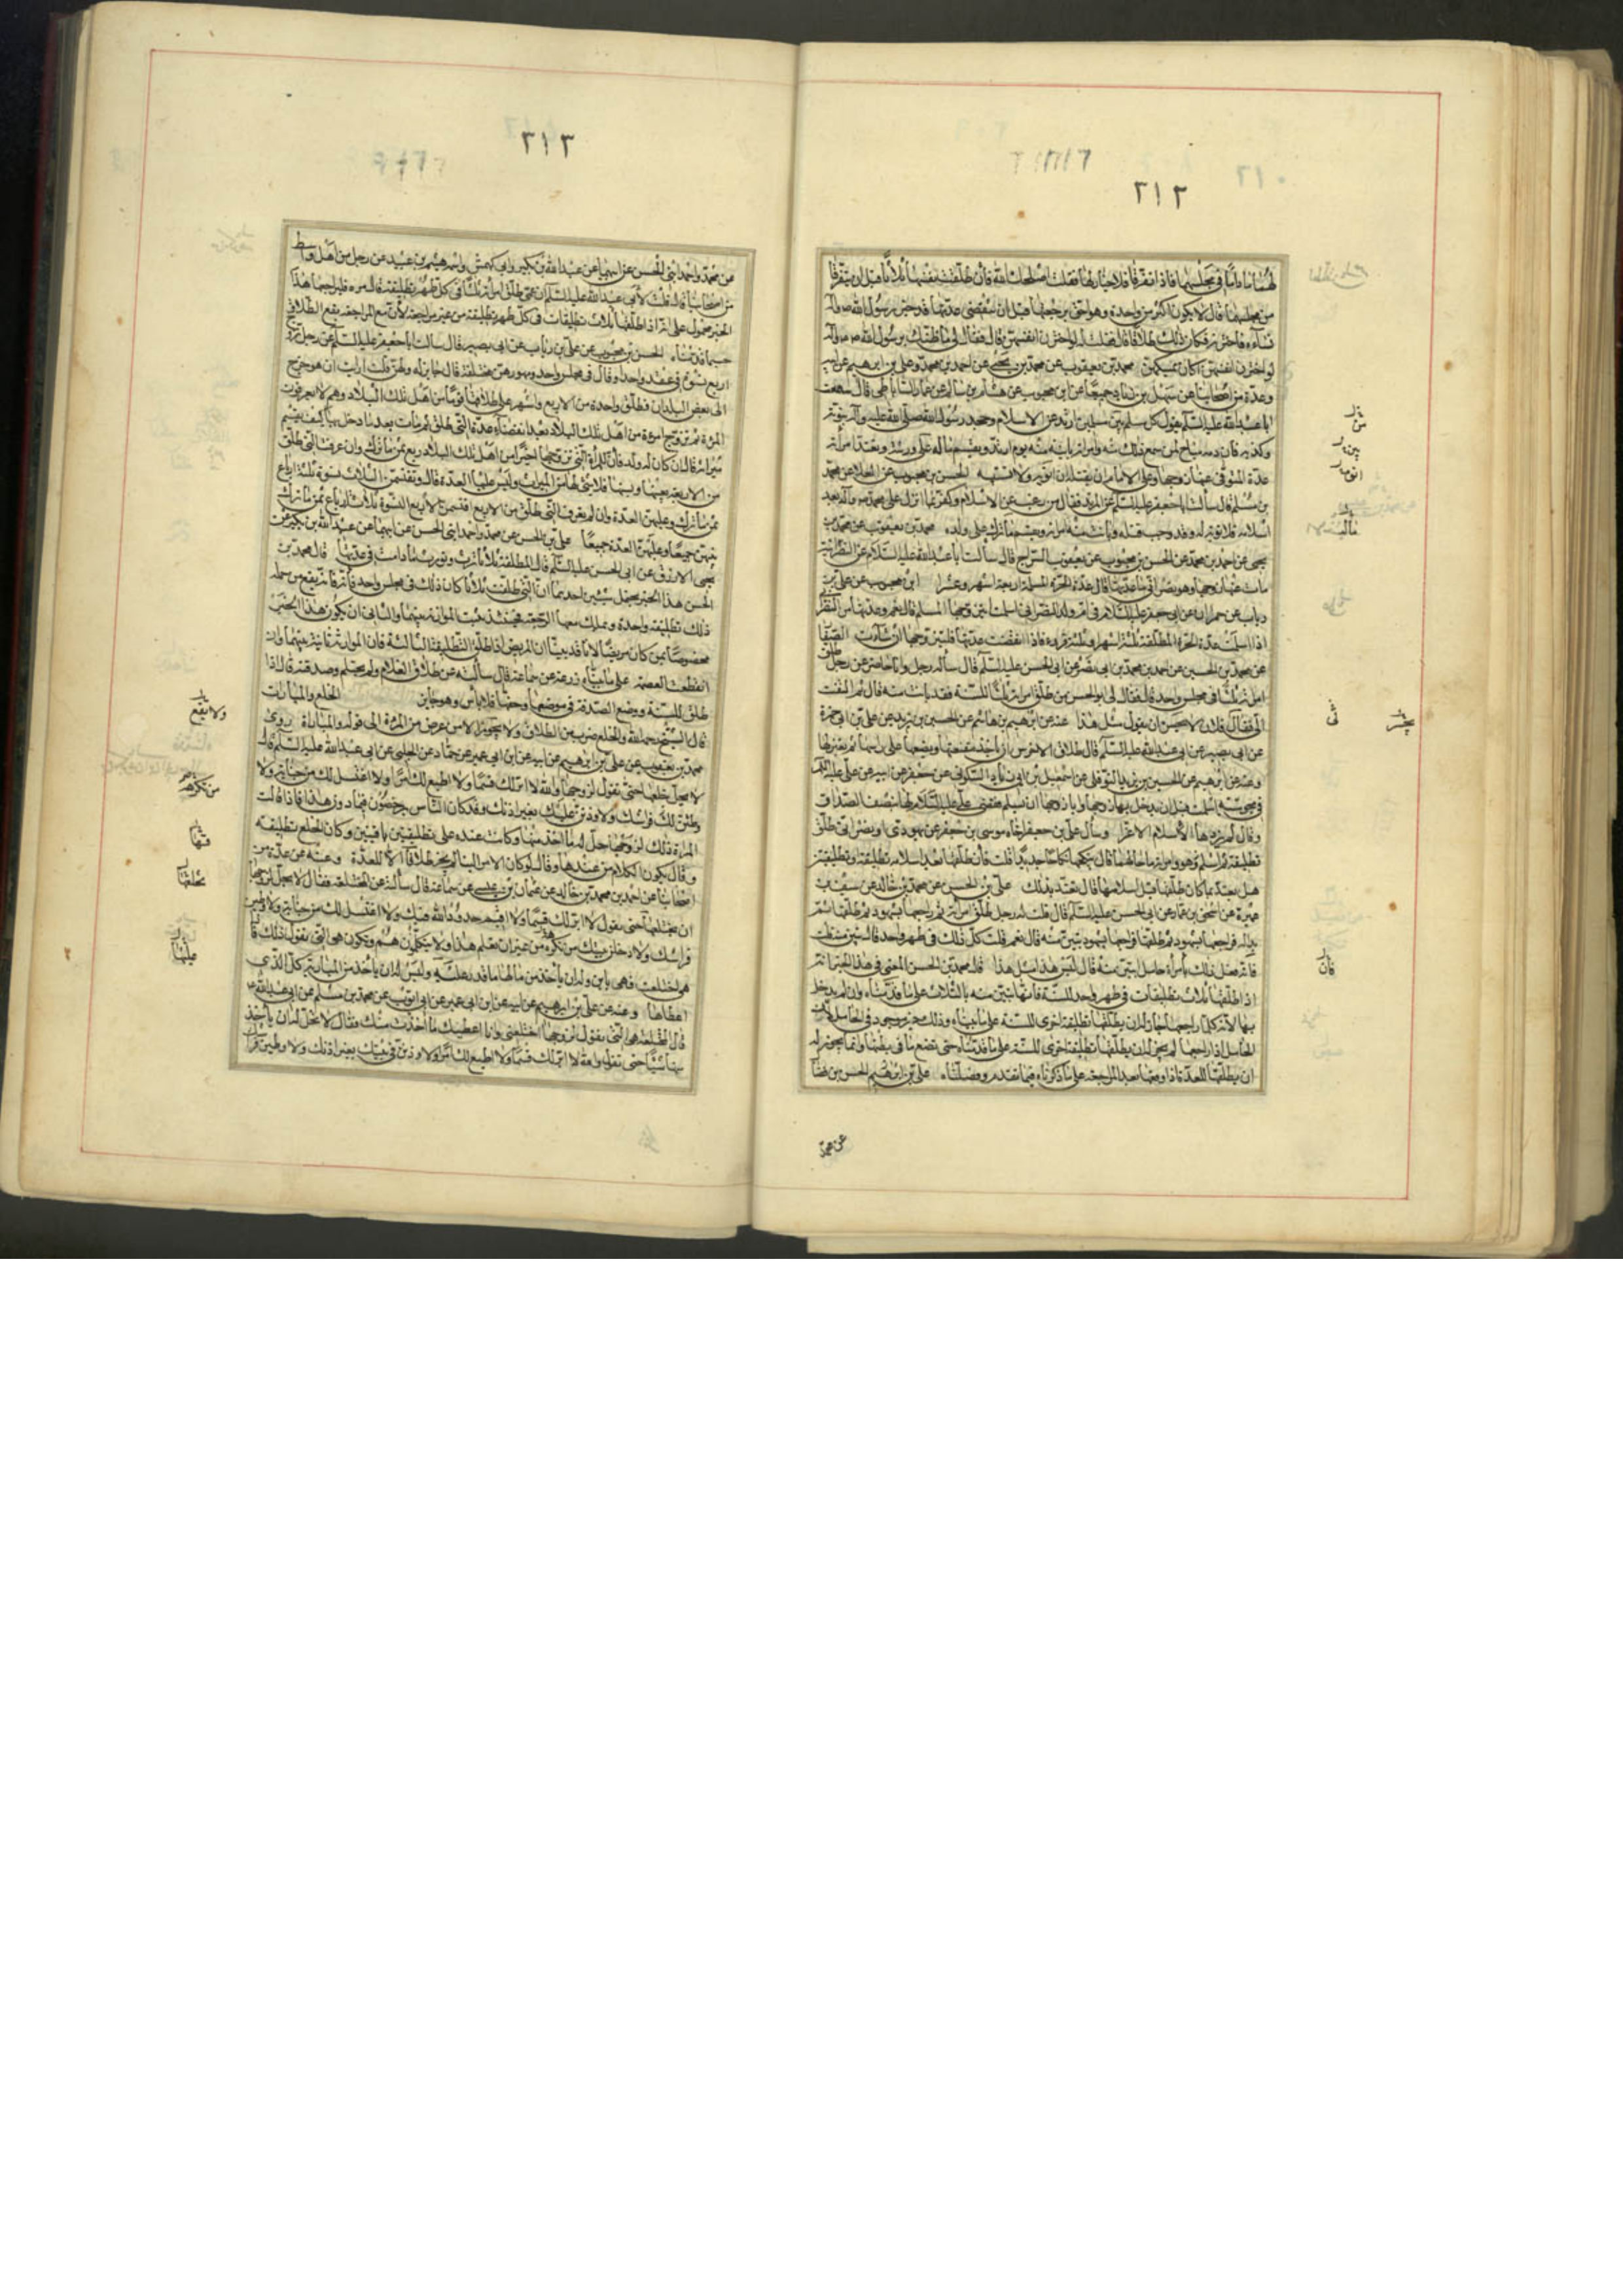 ٢١٢
لهما ما داما في مجلسهما فاذا تفرقا فلا خيار لهما فقلت اصلحك الله فان طلقت نفسها ثلاثا قبل ان يتفرقا
من مجلسهما قال لا يكون اكثر من واحدة وهو احق برجعتها قبل ان تنقضي عدتها قد خير رسول الله
نساءه فاخترنه فكان ذلك طلاقا قال فقلت له لو اخترن انفسهن قال فقال لي ما ظنك برسول الله
لو اخترن انفسهن اكان يمسكهن محمد بن يعقوب عن محمد بن يحيى عن احمد بن محمد وعلي بن ابرهيم عن ابيه
وعدة من اصحابنا عن سهل بن زياد جميعا عن ابن محبوب عن هشام بن سالم عن عمار الساباطي قال سمعت
ابا عبد الله عليه السلم يقول كل مسلم بين مسلمين ارتد عن الاسلام وجحد رسول الله صلى الله عليه وآله نبوته
وكذبه فان دمه مباح لمن سمع ذلك منه وامراته باينة منه يوم ارتد ويقسم ماله على ورثته وتعتد امراته
عدة المتوفى عنها زوجها وعلى الامام ان يقتله ان اتي به ولا يستتيبه الحسن بن محبوب عن العلا عن محمد
بن مسلم قال سألت ابا جعفر عليه السلم عن المرتد فقال من رغب عن الاسلام وكفر بما انزل على محمد
اسلامه فلا توبة له وقد وجب قتله وبانت منه امراته ويقسم ما ترك على ولده محمد بن يعقوب عن محمد بن
يحيى عن احمد بن محمد عن الحسن بن محبوب عن يعقوب السراج قال سالت ابا عبد الله عليه السلام عن النصرانية
مات عنها زوجها وهو نصراني ما عدتها قال عدة الحرة المسلمة اربعة اشهر وعشرا ابن محبوب عن علي بن
رياب عن حمران عن ابي جعفر عليه السلام في ام ولد لنصراني اسلمت ايتزوجها المسلم قال نعم وعدتها من النصراني
اذا اسلمت عدة الحرة المطلقة ثلثة اشهر او ثلثة قروء فاذا انقضت عدتها فليتزوجها ان شاءت الصفار
عن محمد بن الحسين عن احمد بن محمد بن ابي نصر عن ابي الحسن عليه السلم قال سأله رجل وانا حاضر عن رجل طلق
امراته ثلثا في مجلس واحد قال فقال لي ابو الحسن من طلق امراته ثلثا للسنة فقد بانت منه قال ثم التفت
الي فقال فلان لا يحسن ان يقول مثل هذا عنه عن ابرهيم بن هاشم عن الحسين بن يزيد عن علي بن ابي حمزة
عن ابي بصير عن ابي عبد الله عليه السلم قال طلاق الاخرس ان ياخذ مقنعتها ويضعها على راسها ثم يعتزلها
وعنه عن ابرهيم عن الحسين بن يزيد النوفلي عن اسمعيل بن ابي زياد السكوني عن جعفر عن ابيه عن علي عليه السلم
في مجوسية اسلمت قبل ان يدخل بها زوجها وابا زوجها ان يسلم فقضى علي عليه السلام لها نصف الصداق
وقال لم يزدها الاسلام الا عزا وسأل علي بن جعفر اخاه موسى بن جعفر عن يهودي او نصراني طلق
تطليقة ثم اسلم هو وامراته ما حالهما قال ينكحها نكاحا جديدا قلت فان طلقها بعد اسلامه تطليقة او تطليقتين
هل يعتد بما كان طلقها قبل اسلامها قال تعتد بذلك علي بن الحسن عن محمد بن خالد عن سيف بن
عميرة عن اسحق بن عمار عن ابي الحسن عليه السلم قال قلت له رجل طلق امراته ثم راجعها بشهود ثم طلقها ثم
بدا له فراجعها بشهود ثم طلقها فراجعها بشهود تبين منه قال نعم قلت كل ذلك في طهر واحد قال تبين منه قلت
فانه فعل ذلك بامرأة حامل اتبين منه قال ليس هذا مثل هذا قال محمد بن الحسن المعنى في هذا الخبر انه
اذا طلقها ثلاث تطليقات في طهر واحد للسنة فانها تبين منه بالثلاث على ما قدمناه وان لم يدخل
بها لانه كلما راجعها جاز له ان يطلقها تطليقة اخرى للسنة على ما بيناه وذلك غير موجود في الحامل لان
الحامل اذا راجعها لم يجز له ان يطلقها تطليقة اخرى للسنة على ما قدمناه حتى تضع ما في بطنها وانما يجوز له
ان يطلقها للعدة اذا واقعها بعد المراجعة على ما ذكرناه فيما تقدم وفصلناه علي بن ابرهيم الحسن بن فضال
عن محمد
٢١٣
عن محمد واحمد ابني الحسن عن ابيهما عن عبد الله بن بكير وابي كهمش واسمه هيثم بن عبيد عن رجل من اهل واسط
من اصحابنا قال قلت لأبي عبد الله عليه السلم ان عمي طلق امراته ثلثا في كل طهر تطليقة قال مره فليراجعها هذا
الخبر محمول على انه اذا طلقها ثلاث تطليقات في كل طهر تطليقة من غير مراجعة لان مع المراجعة يقع الطلاق
حسبما قدمناه الحسن بن محبوب عن علي بن رياب عن ابي بصير قال سالت ابا جعفر عليه السلم عن رجل تزوج
اربع نسوة في عقد واحد او قال في مجلس واحد ومهورهن مختلفة قال جايز له ولهن قلت ارايت ان هو خرج
الى بعض البلدان فطلق واحدة من الاربع واشهد على طلاقها قوما من اهل تلك البلاد وهم لا يعرفون
المرأة ثم تزوج امرأة من اهل تلك البلاد بعد انقضاء عدة التي طلق ثم مات بعد ما دخل بها كيف يقسم
ميراثه قال ان كان له ولد فان للمرأة التي تزوجها اخيرا من اهل تلك البلاد ربع ثمن ما ترك وان عرفت التي طلق
من الاربع بعينها ونسبها فلا شئ لها من الميراث وليس عليها العدة قال وتقتسمن الثلاث نسوة ثلثة ارباع
ثمن ما ترك وعليهن العدة وان لم يعرف التي طلق من الاربع اقتسمن الاربع النسوة ثلاثة ارباع ثمن ما ترك
بينهن جميعا وعليهن العدة جميعا علي بن الحسن عن محمد واحمد ابني الحسن عن ابيهما عن عبد الله بن بكير عن
يحيى الازرق عن ابي الحسن عليه السلم قال المطلقة ثلاثا ترث وتورث ما دامت في عدتها قال محمد بن
الحسن هذا الخبر يحتمل شيئين احدهما ان التي طلقت ثلاثا كان ذلك في مجلس واحد فانه يقع من جملة
ذلك تطليقة واحدة ويملك معها الرجعة فحينئذ يثبت الموارثة بينهما والثاني ان يكون هذا الخبر
مخصوصا بمن كان مريضا لانا قد بينا ان المريض اذا طلق التطليقة الثالثة فان الموارثة ثابتة بينهما وان
انقطعت العصمة على ما بيناه زرعة عن سماعة قال سالته عن طلاق الغلام ولم يحتلم وصدقته قال اذا
طلق للسنة ووضع الصدقة في موضعها وحقها فلا بأس وهو جايز الخلع والمبارات
قال الشيخ رحمه الله والخلع ضرب من الطلاق ولا يجوز الا من عرض من المرأة الى قوله والمباراة روى
محمد بن يعقوب عن علي بن ابرهيم عن ابيه عن ابن ابي عمير عن حماد عن الحلبي عن ابي عبد الله عليه السلم قال
لا يحل خلعها حتى تقول لزوجها والله لا ابر لك قسما ولا اطيع لك امرا ولا اغتسل لك من جنابة ولا
وطئن لك فراشك ولاوذنن عليك بغير اذنك وقد كان الناس يرخصون فيما دون هذا فاذا قالت
المرأة ذلك لزوجها حل له ما اخذ منها وكانت عنده على تطليقتين باقيتين وكان الخلع تطليقة
وقال يكون الكلام من عندها وقال لو كان الامر الينا لم يجز طلاقا الا للعدة وعنه عن عدة من
اصحابنا عن احمد بن محمد بن خالد عن عثمان بن عيسى عن سماعة قال سألته عن المختلعة فقال لا يحل لزوجها
ان يخلعها حتى تقول لا ابر لك قسما ولا اقيم حدود الله فيك ولا اغتسل لك من جنابة ولاوطئن
فراشك ولادخلن بيتك من تكره من غير ان تعلم هذا ولا يتكلمون هم وتكون هي التي تقول ذلك فاذا
هي اختلعت فهي باين وله ان ياخذ من مالها ما قدر عليه وليس له ان ياخذ من المبارية كل الذي
اعطاها وعنه عن علي بن ابراهيم عن ابيه عن ابن ابي عمير عن ابي ايوب عن محمد بن مسلم عن ابي عبد الله
قال المختلعة هي التي تقول لزوجها اخلعني وانا اعطيك ما اخذت منك وقال لا يحل له ان ياخذ
منها شيئا حتى تقول والله لا ابر لك قسما ولا اطيع لك امرا ولاوذنن في بيتك بغير اذنك ولاوطئن فراشك
ولا يقع
من تكرهه
فيها
يخلعها
عليها